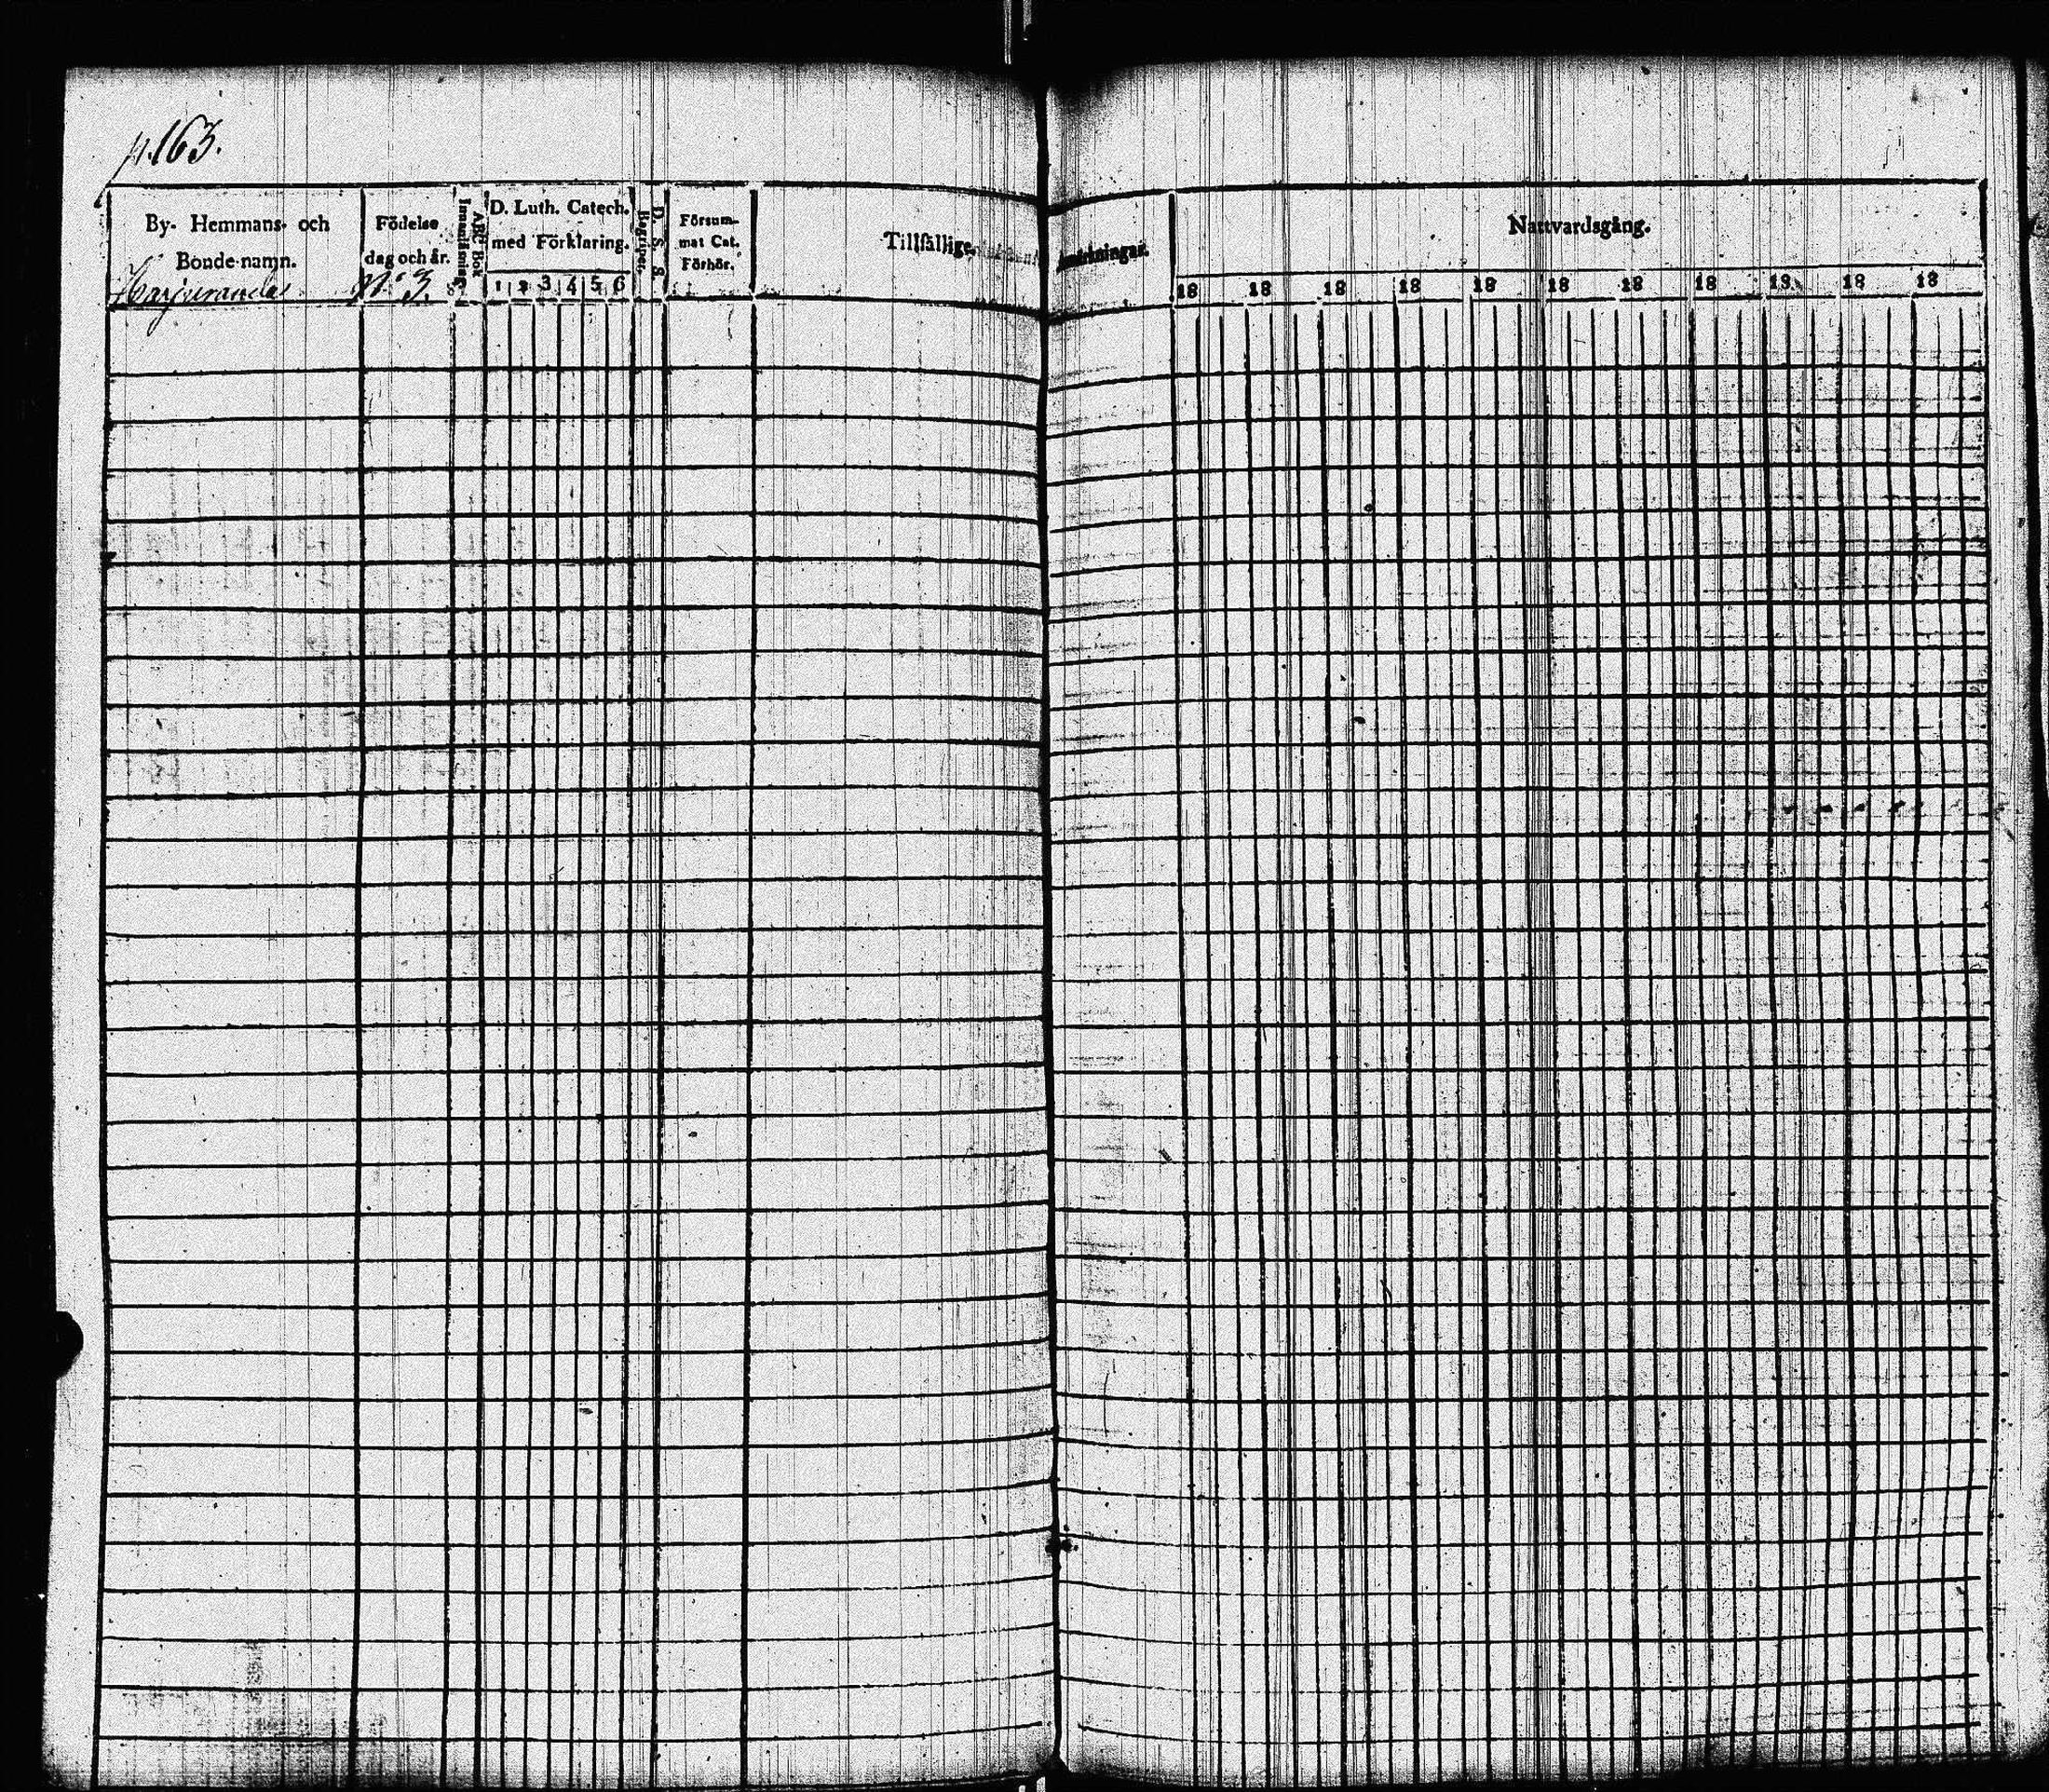 p. 163.
By- Hemmans- och
Bonde-namn.
Födelse
dag och år.
N:o 3.
Innanläsning.
ABC Bok
D. Luth. Catech.
med Förklaring.
1 2 3 4 5 6
Begriper.
D. S. S.
Försum-
mat Cat.
Förhör.
Tillfällige Anmärkningar.
Nattvardsgång.
18 18 18 18 18 18 18 18 18 18 18